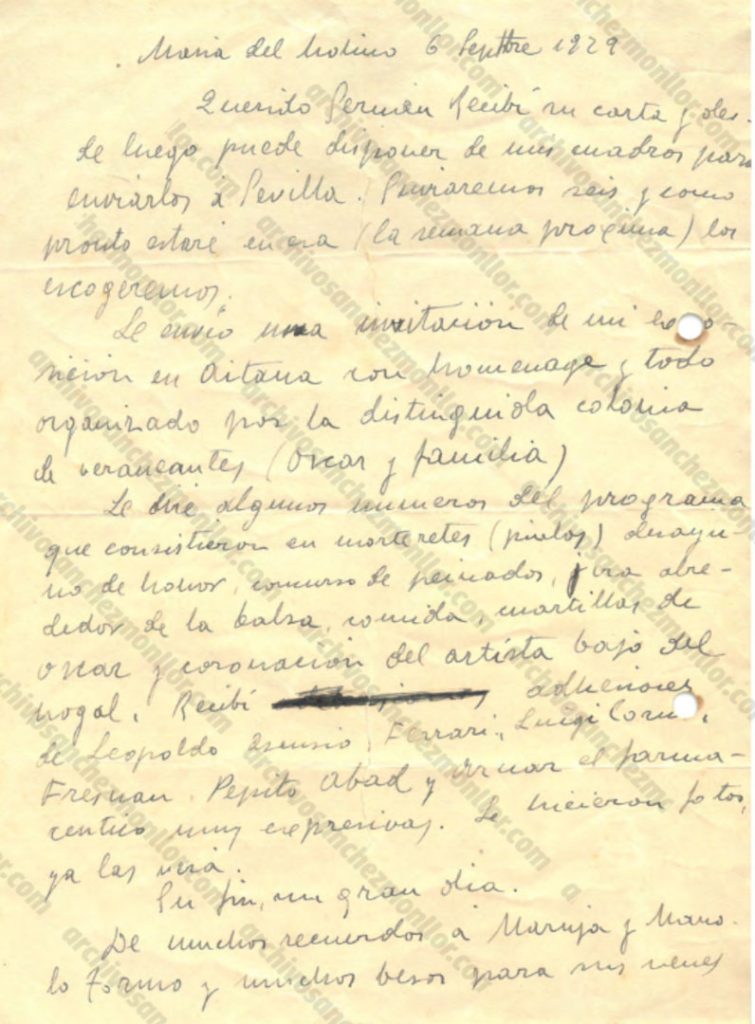 Maria del Molino 6 Septtbre 1929
Querido Germán Recibí su carta y des-
de luego puede disponer de mis cuadros para
enviarlos a Sevilla. Enviaremos seis y como
pronto estaré en esa (la semana proxima) los
escogeremos.
Le envio una invitación de mi expo-
sición en Aitana con homenage y todo
organizado por la distinguida colonia
de veraneantes (Oscar y familia)
Le diré algunos numeros del programa
que consistieron en morteretes (pirulos) desayu-
no de honor, concurso de peinados, jira alre-
dedor de la balsa, comida, cuartillas de
Oscar y coronación del artista bajo del
nogal. Recibí adhesiones
de Leopoldo Asensio, Ferrari, Luigi
Fresnan. Pepito Abad y Arnar el farma-
ceutico muy expresivas. Se hicieron fotos,
ya las verá.
En fin, un gran dia.
De muchos recuerdos a Maruja y Mano-
lo Tormo y muchos besos para sus nenes
archivosanchezmonllor.com